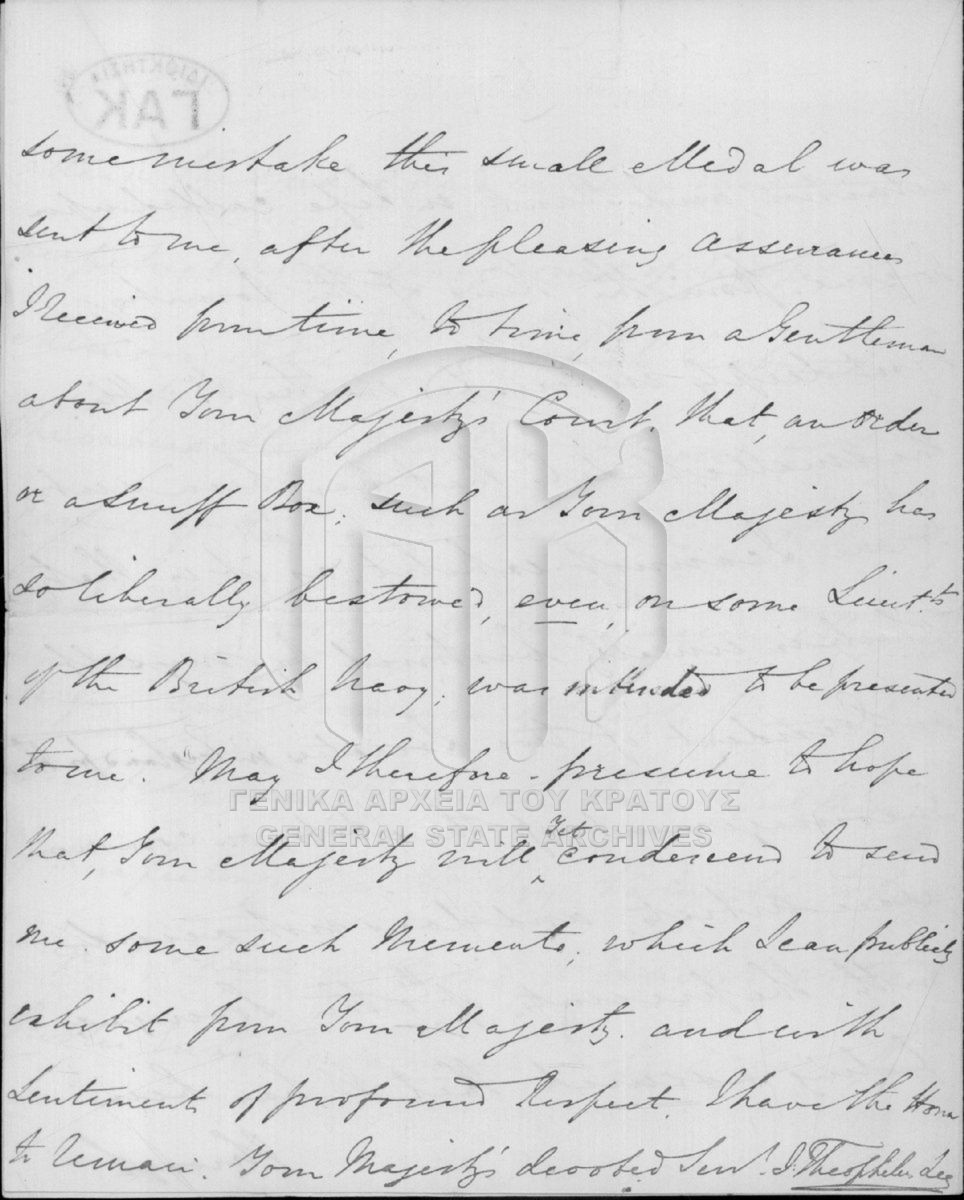 ΙΔΙΟΚΤΗΣΙΑ
ΓΑΚ
some mistake this small Medal was
sent to me, after the pleasing assurances
I received from time, to time, from a Gentleman
about Your Majesty's Court. that, an Order
or a Snuff Box; such as Your Majesty has
so liberally bestowed, even, on some Lieut.ts
of the British Navy; was intended to be presented
to me. May I therefore presume to hope
that, Your Majesty will Yet condescend to send
me some such Memento; which I can publicly
exhibit from Your Majesty. and with
Sentiments of profound Respect. I have the Honor
to Remain. Your Majesty's devoted Serv.t J. Theophilus Lee
ΓΕΝΙΚΑ ΑΡΧΕΙΑ ΤΟΥ ΚΡΑΤΟΥΣ
GENERAL STATE ARCHIVES